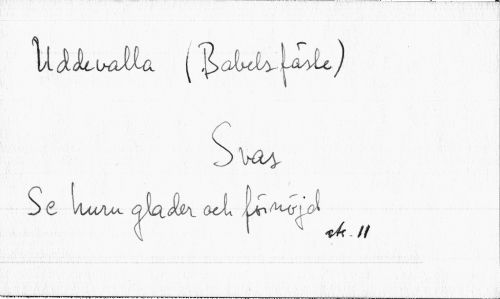 Uddevalla (Babels fäste)
Svas
Se huru glader och förnöjd
ak. 11